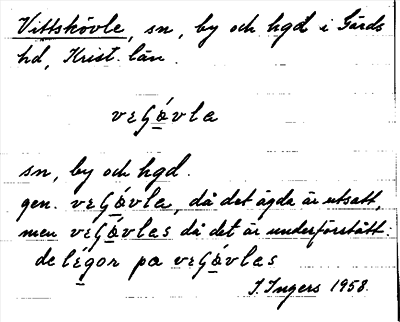 Vittskövle, sn, by och hgd i Gärds
hd, Krist. län.
vεGó̱vla
sn, by och hgd.
gen. vεGó̱vla, då det ägda är utsatt,
men vεGó̱vlas då det är underförstått:
de lé̱gor pa vεGó̱vlas
I. Ingers 1958.